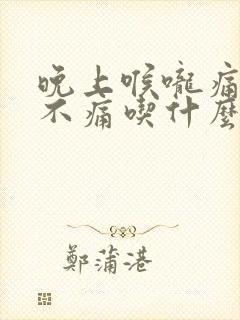 晚上喉嚨痛
不痛喫什麼
鄭蒲港